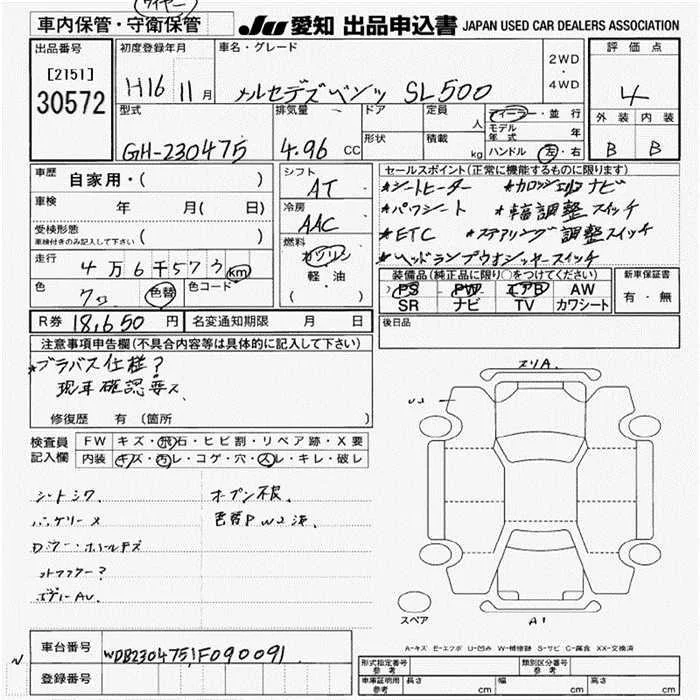 車内保管・守衛保管
JU 愛知 出品申込書 JAPAN USED CAR DEALERS ASSOCIATION
出品番号
[2151]
30572
初度登録年月
H16 11月
車名・グレード
メルセデスベンツ SL500
2WD
・
4WD
評価点
4
外装 内装
B B
型式
GH-230475
排気量
4.96 CC
ドア
形状
定員
人
積載
kg
ディーラー・並行
モデル年式 年
ハンドル 左・右
車歴 自家用・( )
車検 年 月( 日)
受検形態
車検付きのみ記入して下さい ( )
走行 4万6千573 km
色 クロ 色替 色コード
シフト
AT
冷房
AAC
燃料
ガソリン
軽・油
( )
セールスポイント(正常に機能するものに限ります)
*シートヒーター *カロッジェリア ナビ
*パワシート
*ETC *ステアリング 調整スイッチ
*ヘッドランプウォッシャースイッチ
装備品(純正品に限り○をつけてください)
PS PW エアB AW
SR ナビ TV カワシート
新車保証書
有・無
R券 18,650円 名変通知期限 月 日
後日品
注意事項申告欄(不具合内容等は具体的に記入して下さい)
*ブラバス仕様?
現車確認要ス
修復歴 有(箇所 )
検査員
記入欄
FW キズ・飛石・ヒビ割・リペア跡・X要
内装 キズ・汚レ・コゲ・穴・スレ・キレ・破レ
シートシワ オープン不良
色替PW2済
ボデーAU
スリA
スペア
A1
A-キズ E-エクボ U-凹み W-補修跡 S-サビ C-腐食 XX-交換済
車台番号 WDB2304751F090091
登録番号
形式指定番号
参考
類別区分番号
参考
車庫証明用
参考
長さ cm 幅 cm 高さ cm